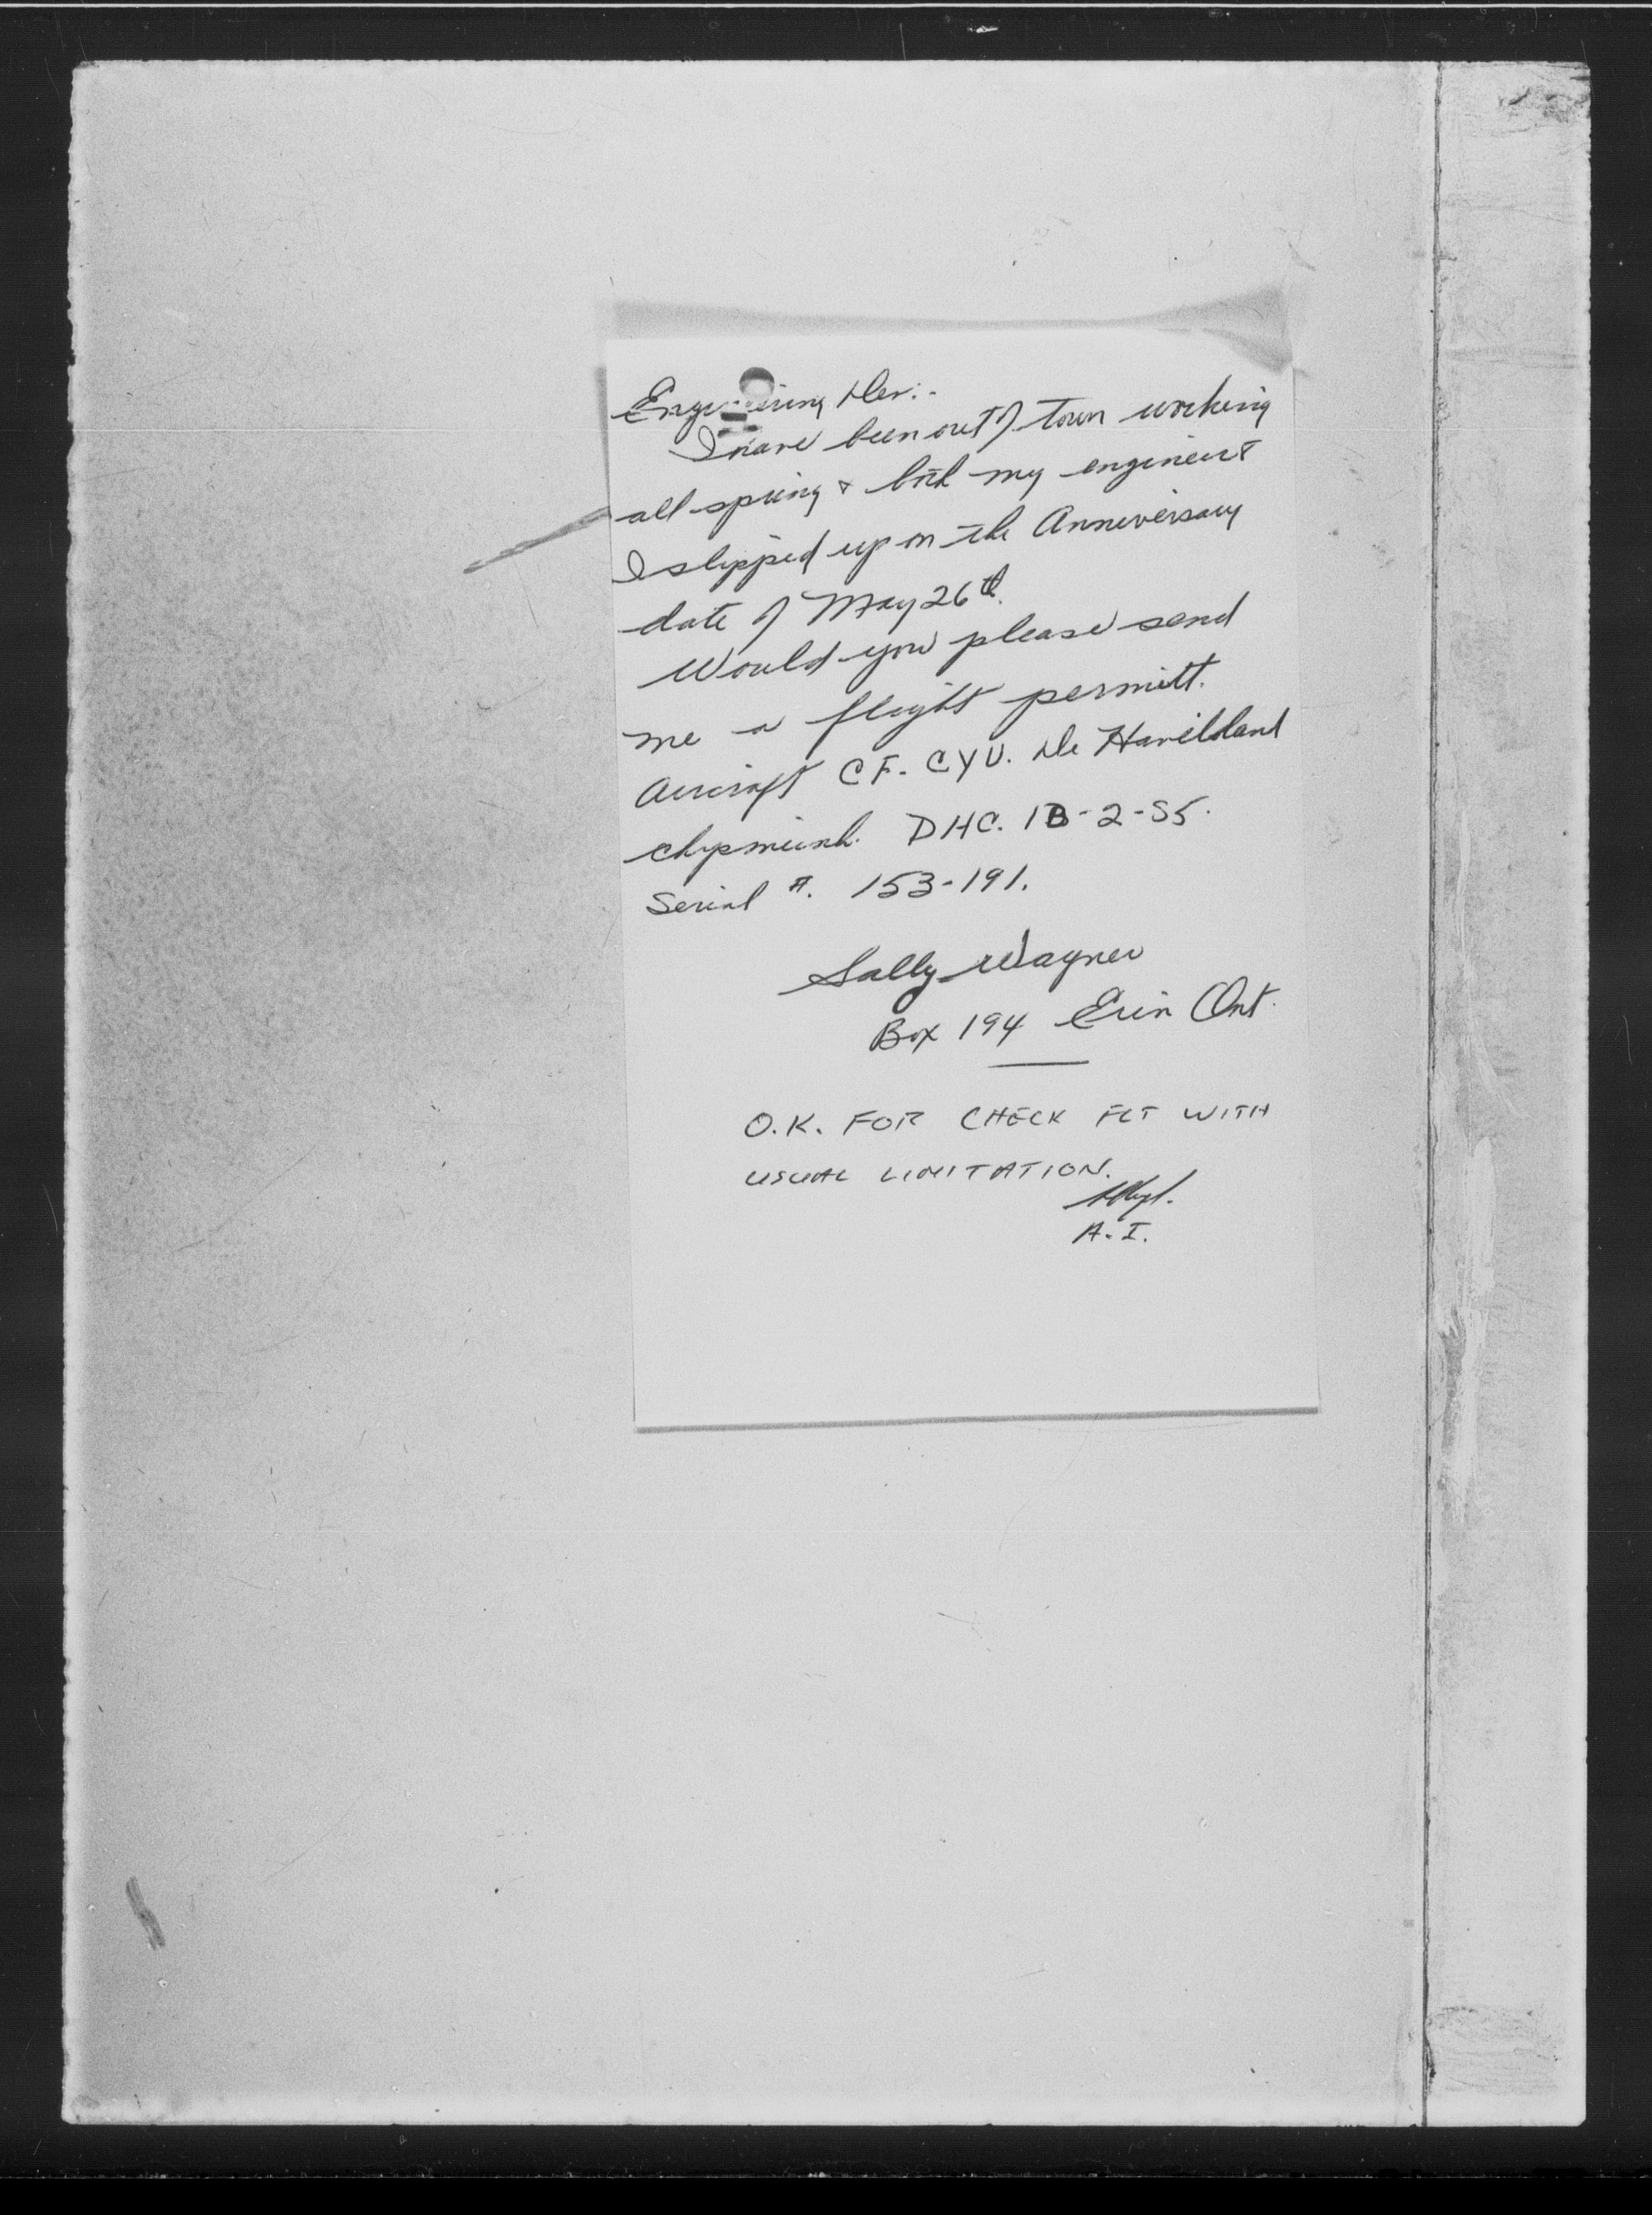 Engineering Div:-
I have been out of town working
all spring & both my engineer &
I slipped up on the Anniversary
date of May 26th.
Would you please send
me a flight permitt.
Aircraft CF. CYU. De Havilland
chipmunk. DHC. 1B-2-S5.
Serial #. 153-191.
Sally Wagner
Box 194 Erin Ont.
O.K. FOR CHECK FLT WITH
USUAL LIMITATION.
A. I.